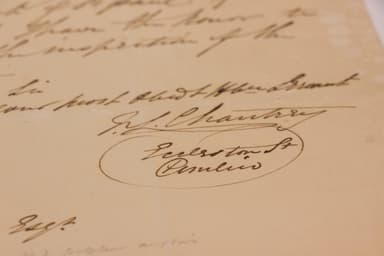 I have the honor to
the inspection of the
Sir
your most obedt Hble Servant
F. L. Chantrey
Eccleston St
Pimlico
Esqr.